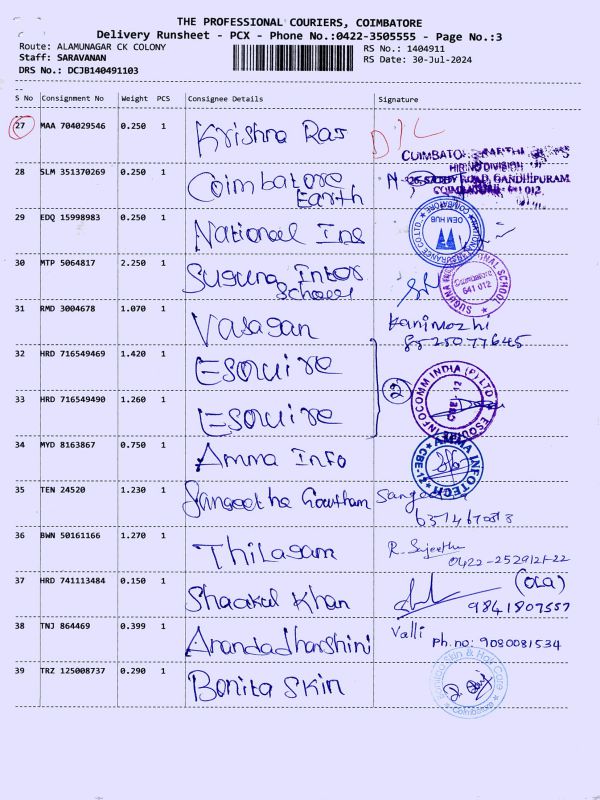 THE PROFESSIONAL COURIERS, COIMBATORE
Delivery Runsheet - PCX - Phone No.:0422-3505555 - Page No.:3
Route: ALAMUNAGAR CK COLONY
RS No.: 1404911
Staff: SARAVANAN
RS Date: 30-Jul-2024
DRS No.: DCJB140491103
S No Consignment No Weight PCS Consignee Details Signature
27 MAA 704029546 0.250 1 Krishna Ras D/L
28 SLM 351370269 0.250 1 Coimbatore Earth
HIRING DIVISION
ROAD, GANDHIPURAM
29 EDQ 15998983 0.250 1 National Ins
OEM HUB
30 MTP 5064817 2.250 1 Suguna Inter School
Coimbatore
641 012
31 RMD 3004678 1.070 1 Vasagan Kanimozhi
8525077645
32 HRD 716549469 1.420 1 Esquire
2
33 HRD 716549490 1.260 1 Esquire
ESQUIRE INFOCOMM INDIA (P) LTD
CBE 12
34 MYD 8163867 0.750 1 Amma Info
AMMA INFOTECH
CBE-12
35 TEN 24520 1.230 1 Sangeetha Gowtham
36 BWN 50161166 1.270 1 Thilagam R. Sujeetha
37 HRD 741113484 0.150 1 Shaakul Khan
9841807557
38 TNJ 864469 0.399 1 Anandadharshini Valli
Ph.no: 9080081534
39 TRZ 125008737 0.290 1 Bonita Skin
Bonitaa Skin & Hair Care
Coimbatore